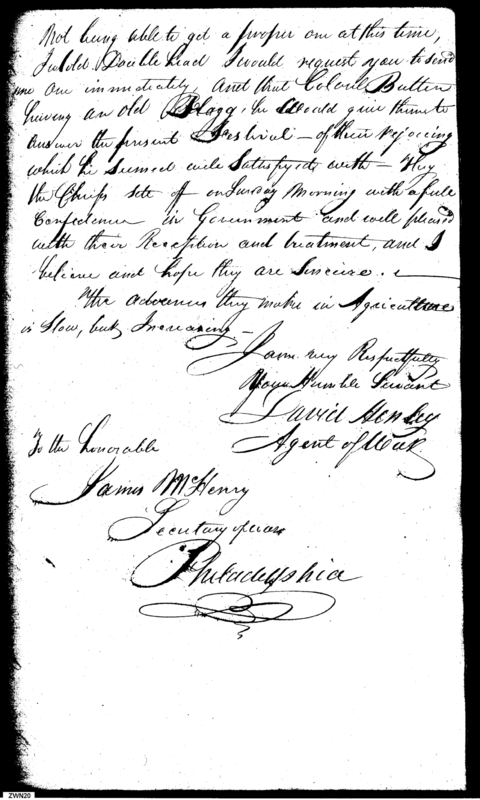 Not being able to get a proper one at this time,
I told Double head I would request you to send
me one immediately, and that Colonel Butler
having an old Flagg, he would give them to
answer the present Festival – of their rejoicing
which he seemed well Satisfyed with – They
the Chiefs sett off on Sunday Morning with a full
Confidence in Government and well pleased
with their Reception and treatment, and I
believe and hope they are Sincere. –
The advances they make in Agriculture
is slow, but Increasing –
I am very Respectfully
Your Humble Servant
David Henley
Agent of War
To the Honorable
James McHenry
Secretary of war
Philadelphia
ZWN20